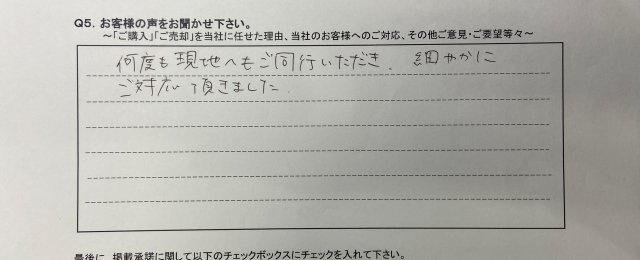 Q5. お客様の声をお聞かせ下さい。
～「ご購入」「ご売却」を当社に任せた理由、当社のお客様へのご対応、その他ご意見・ご要望等々～
何度も現地へもご同行いただき、細やかに
ご対応頂きました
最後に、掲載承諾に関して以下のチェックボックスにチェックを入れて下さい。